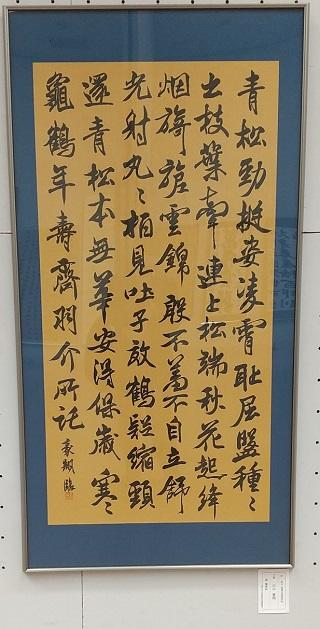 青松勁挺姿凌霄恥屈盤種〻
出枝葉牽連上松端秋花起絳
烟旖旎雲錦殷不羞不自立舒
光射丸〻柏見吐子效鶴疑縮頸
還青松本無華安得保歲寒
龜鶴年壽齊羽介所託
臨